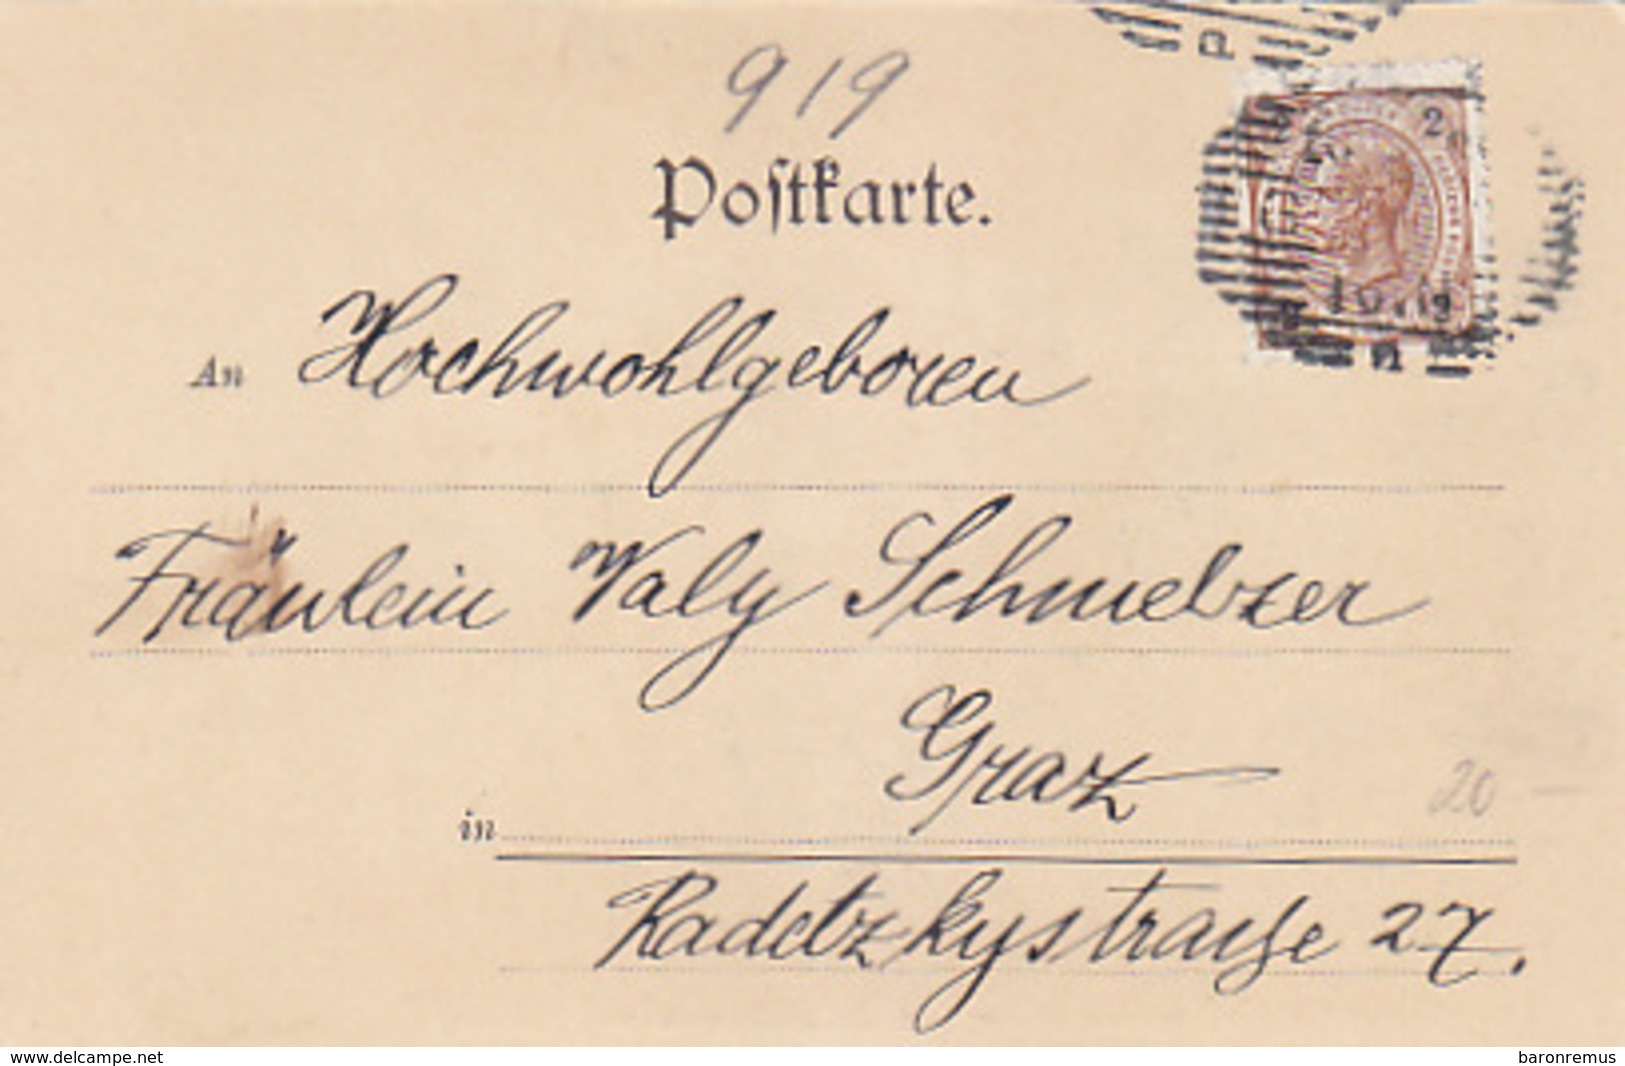 919
2
Postkarte.
An Hochwohlgeboren
Fräulein Valy Schmelzer
in Graz
20 –
Radetzkystraße 27.
www.delcampe.net
baronremus